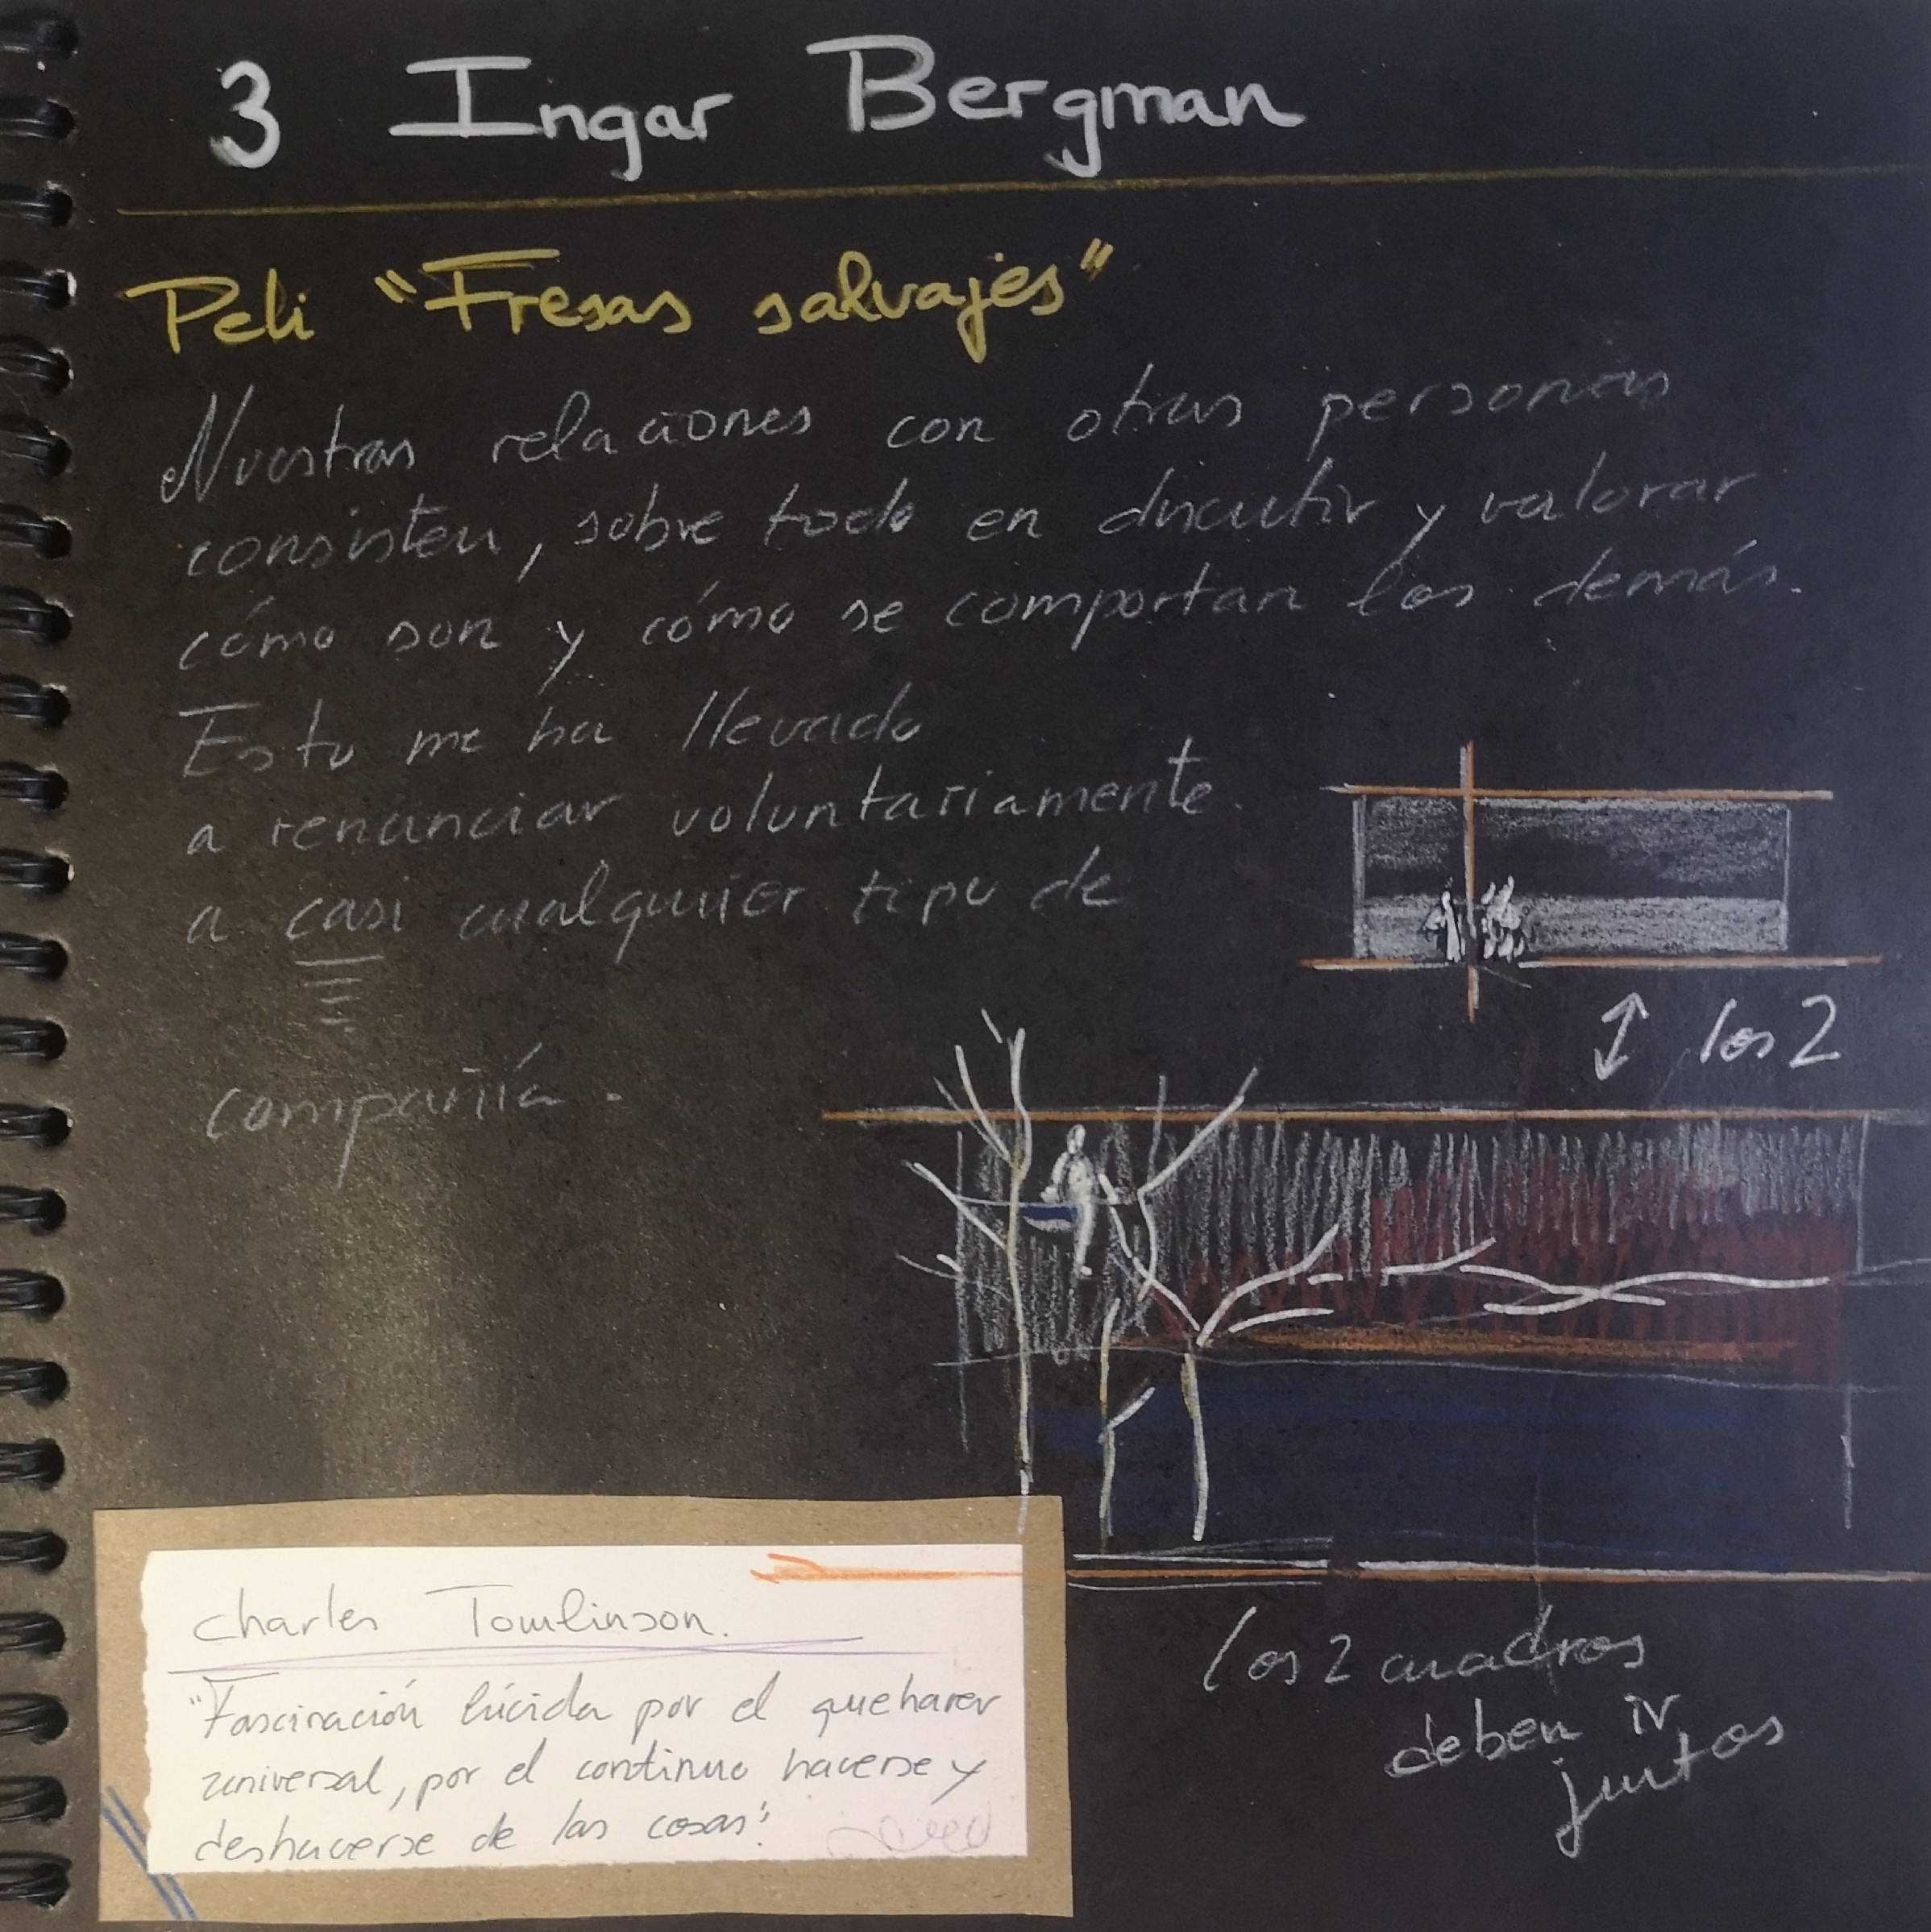 3 Ingar Bergman
Peli "Fresas salvajes"
Nuestras relaciones con otras personas
consisten, sobre todo en discutir y valorar
cómo son y cómo se comportan los demás.
Esto me ha llevado
a renunciar voluntariamente
a casi cualquier tipo de
compañía.
↕ los 2
los 2 cuadros
deben ir
juntos
Charles Tomlinson.
"Fascinación lúcida por el quehacer
universal, por el continuo hacerse y
deshacerse de las cosas".